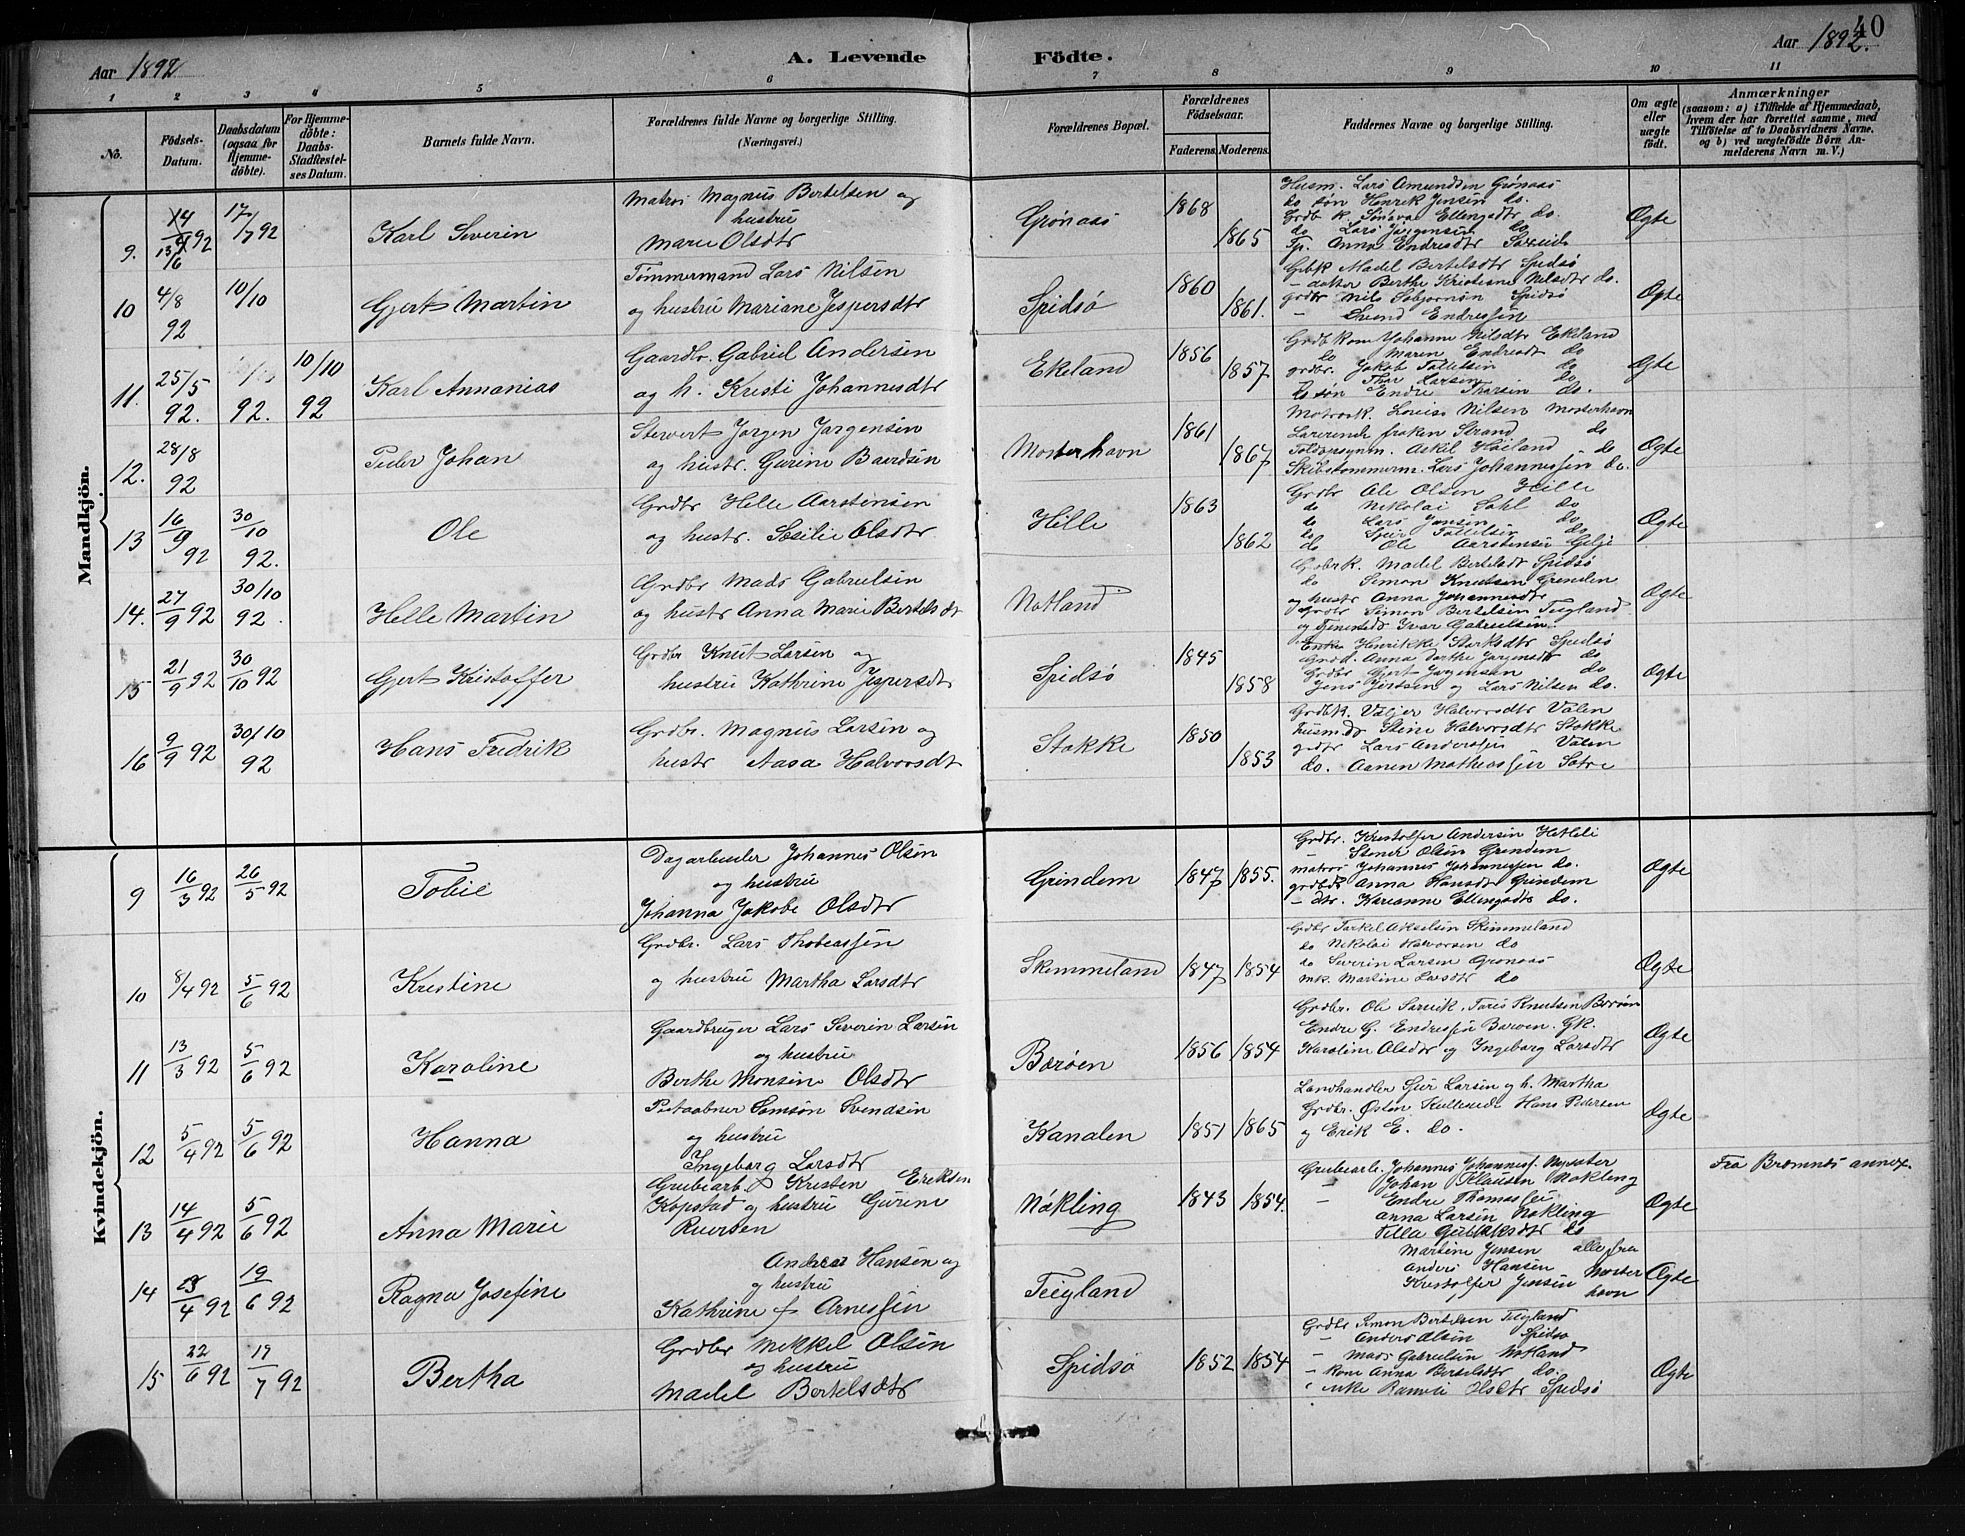 Aar 1892
A. Levende Födte.
Aar 1892.
40
1 2 3 4 5 6 7 8 9 10 11
No.
Födsels-Datum.
Daabsdatum (ogsaa for Hjemmedöbte).
For Hjemmedöbte: Daabs-Stadfæstelses Datum.
Barnets fulde Navn.
Forældrenes fulde Navne og borgerlige Stilling. (Næringsvei.)
Forældrenes Bopæl.
Forældrenes Födselsaar.
Faderens. Moderens.
Faddernes Navne og borgerlige Stilling.
Om ægte eller uægte födt.
Anmærkninger
(saasom: a) i Tilfælde af Hjemmedaab, hvem der har forrettet samme, med Tilföielse af to Daabsvidners Navne, og b) ved uægtefödte Börn Anmelderens Navn m. V.)
Mandkjön.
9. 17/7 92 Karl Severin
Matros Magnus Bertelsen og
hustru
Marie Olsdtr
Grönaas 1868 1865
Husm. Lars Amundsen Grönaas
do sön Henrik Jensen do.
do Lars Jörgensen do
Tp. Anna Endresdtr
Ægte
10 4/8 92 10/10 Gjert Martin
Tömmermand Lars Nilsen
og hustru Mariane Jespersdtr
Spidsö 1860 1861.
Grbk Madel Bertelsdtr Spidsö
- datter Berthe Kristiane Nilsdtr do.
- Svend Endresen
Ægte
11. 25/5 92. 92. 10/10 92 Karl Annanias
Gaardbr. Gabriel Andersen
og h. Kristi Johannesdtr
Ekeland 1856 1857
Grdbr kone Johanne Nilsdtr Ekeland
do Maren Endresdtr do
grdbr. Jakob Tollefsen do
Thor Larsen do
do sön Endre Thorsen do.
Ægte
12. 28/8 92 Peder Johan
Stewert Jörgen Jörgensen
og hustr. Gurine Baardsen
Mosterhavn 1861 1867
Matrosk. Lovise Nilsen Mosterhavn
Lærerinde fröken Strand do
Askil Høiland - do
Skibstömmerm. Lars Johannessen do.
Ægte
13 16/9 92 30/10 92. Ole
Grdbr Helle Aarstensen
og hustr. Sesilie Olsdtr
Hille 1863 1862
Grdbr Ole Olsen Hille
do Nikolai Dahl do
do Lars Jensen do
do Sjur Tollefsen do
do Ole Aarstensen Gilje
Ægte
14. 27/9 92 30/10 92. Helle Martin
Grdbr Mads Gabrielsen
og hustr Anna Marie Bertelsdt
Notland
Grdbrk. Madel Bertelsdt Spidsö
do Simon Knutsen Grinden
og hustr Anna Johannesdtr
Grdbr Simon Bertelsen Teigland
og Tjenestedr Ivar Gabrielsen.
Ægte
15 21/9 92 30/10 92 Gjert Kristoffer
Grdbr Knut Larsen og
hustru Kathrine Jespersdt
Spidsö 1845 1858
Enke Henrikke Størksdtr Spidsö
Grdd. Anna Dorthe Jörgensdtr do
Grdbr Gjert Jörgensen do
Jens Jensen og Lars Nilsen do.
Ægte
16 9/9 92 30/10 92 Hans Fredrik
Grdbr. Magnus Larsen og
hustr Aasa Halvorsdt
Stokke 1850 1853
Grdbk. Valjer Halvorsdtr Valen
Husmds Stine Halvorsdtr Stokke
grdbr Lars Anderssen Valen
do. Aanen Mathiassen Sætre
Kvindekjön.
9 16/3 92 26/5 92 Tobie
Dagarbeider Johannes Olsen
og hustru
Johanna Jakobe Olsdtr
Grindem 1847 1855.
Grdbr. Kristoffer Andersen Hetleli
- Stener Olsen Grendem
matros Johannes Johannessen do.
grdbdt Anna Hansdtr Grindem
- dtr. Karianne Ellingsdtr do.
Ægte
10 8/4 92 5/6 92 Kristine
Grdbr. Lars Thobiassen
og hustru Martha Larsdtr
Skimmeland 1847 1854
Grdbr Torkel Akselsen Skimmeland
do Nikolai Halvorsen do
do Severin Larsen Grönaas
mk. Martine Larsdtr do
Ægte
11 13/3 92 5/6 92 Karoline
Gaardbruger Lars Severin Larsen
og hustru
Berthe Monsine Olsdtr
Boröen 1856 1854
Grdbr. Ole Særvik. Taris Knutsen Boröen
Endre G. Endressen Boroen. Gk.
Karoline Olsdtr og Ingeborg Larsdtr
Ægte
12 5/4 92 5/6 92 Hanna
Postaabner Samson Svendsen
og hustru
Ingeborg Larsdtr
Kanalen 1851 1865
Landhandler Sjur Larsen og h. Martha
Grdbr. Östen Kulleseid Hans Pedersen
og Erik E. do.
Ægte
13 14/4 92 5/6 92 Anna Marie
Grubearb Kristen Eriksen
Kopstad og hustru Gurine
Nökling 1843 1854.
Grubearb. Johannes Johanness. Nysæter
- Johan Klausen Nökling
- Endre Thomassen
Anna Larsen Nökling
Ægte
Fra Bremnes annex.
14 13/4 92 19/6 92 Ragna Josefine
Andreas Hansen og
og hustru
Kathrine f Arnessen
Teigland
Martine Jensen alle fra
Anders Hansen Moster
Kristoffer Jensen havn
Ægte
15 22/6 92 17/7 92 Bertha
Grdbr Mikkel Olsen
og hustru
Madel Bertelsdtr
Spidsö 1852 1854
Grdbr Simon Bertelsen Teigland
- Anders Olsen Spidsö
- Mads Gabrielsen Notland
- kone Anna Bertelsdtr do.
- enke Olsdtr Spidsö
Ægte